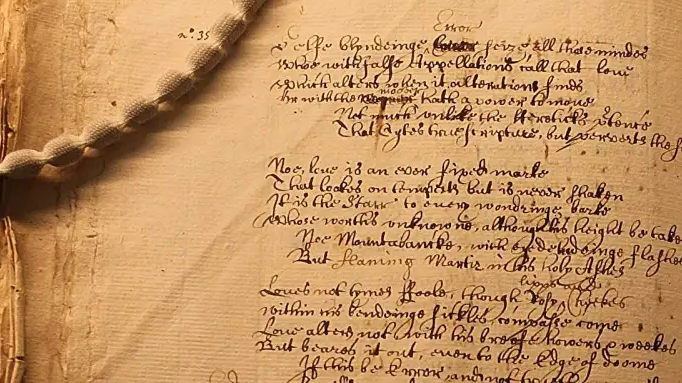 Error
nᵒ. 35
selfe blyndeinge seize all those mindes
Whoe with false Appellations call that love
Which alters when it alterations finds
mover
Or with the hath a power to move
Not much unlike the Hereticks ptence
That Cytes true scripture, but perverts the
Noe, love is an ever fixed marke
That lookes on tempests but is never shaken
It is the Starr to every wondringe barke
Whose worths unknowne, although his height be take
Noe Mountabancke, with eydeludeinge flashes
But flaming Martir in his holy Ashes
lipps and
Loves not tymes Foole, though Rosy Cheekes
Within his bendeinge sickles compasse come
Love alters not with his breefe howers & weekes
But beares it out, even to the Edge of doome
If this be Error, and not